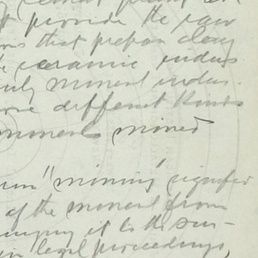 provide the raw
that prepar clay
ceramic indus
mineral indus.
different kinds
minerals mined
"mining" signified
of the mineral from
it to the sur-
in legal proceedings,